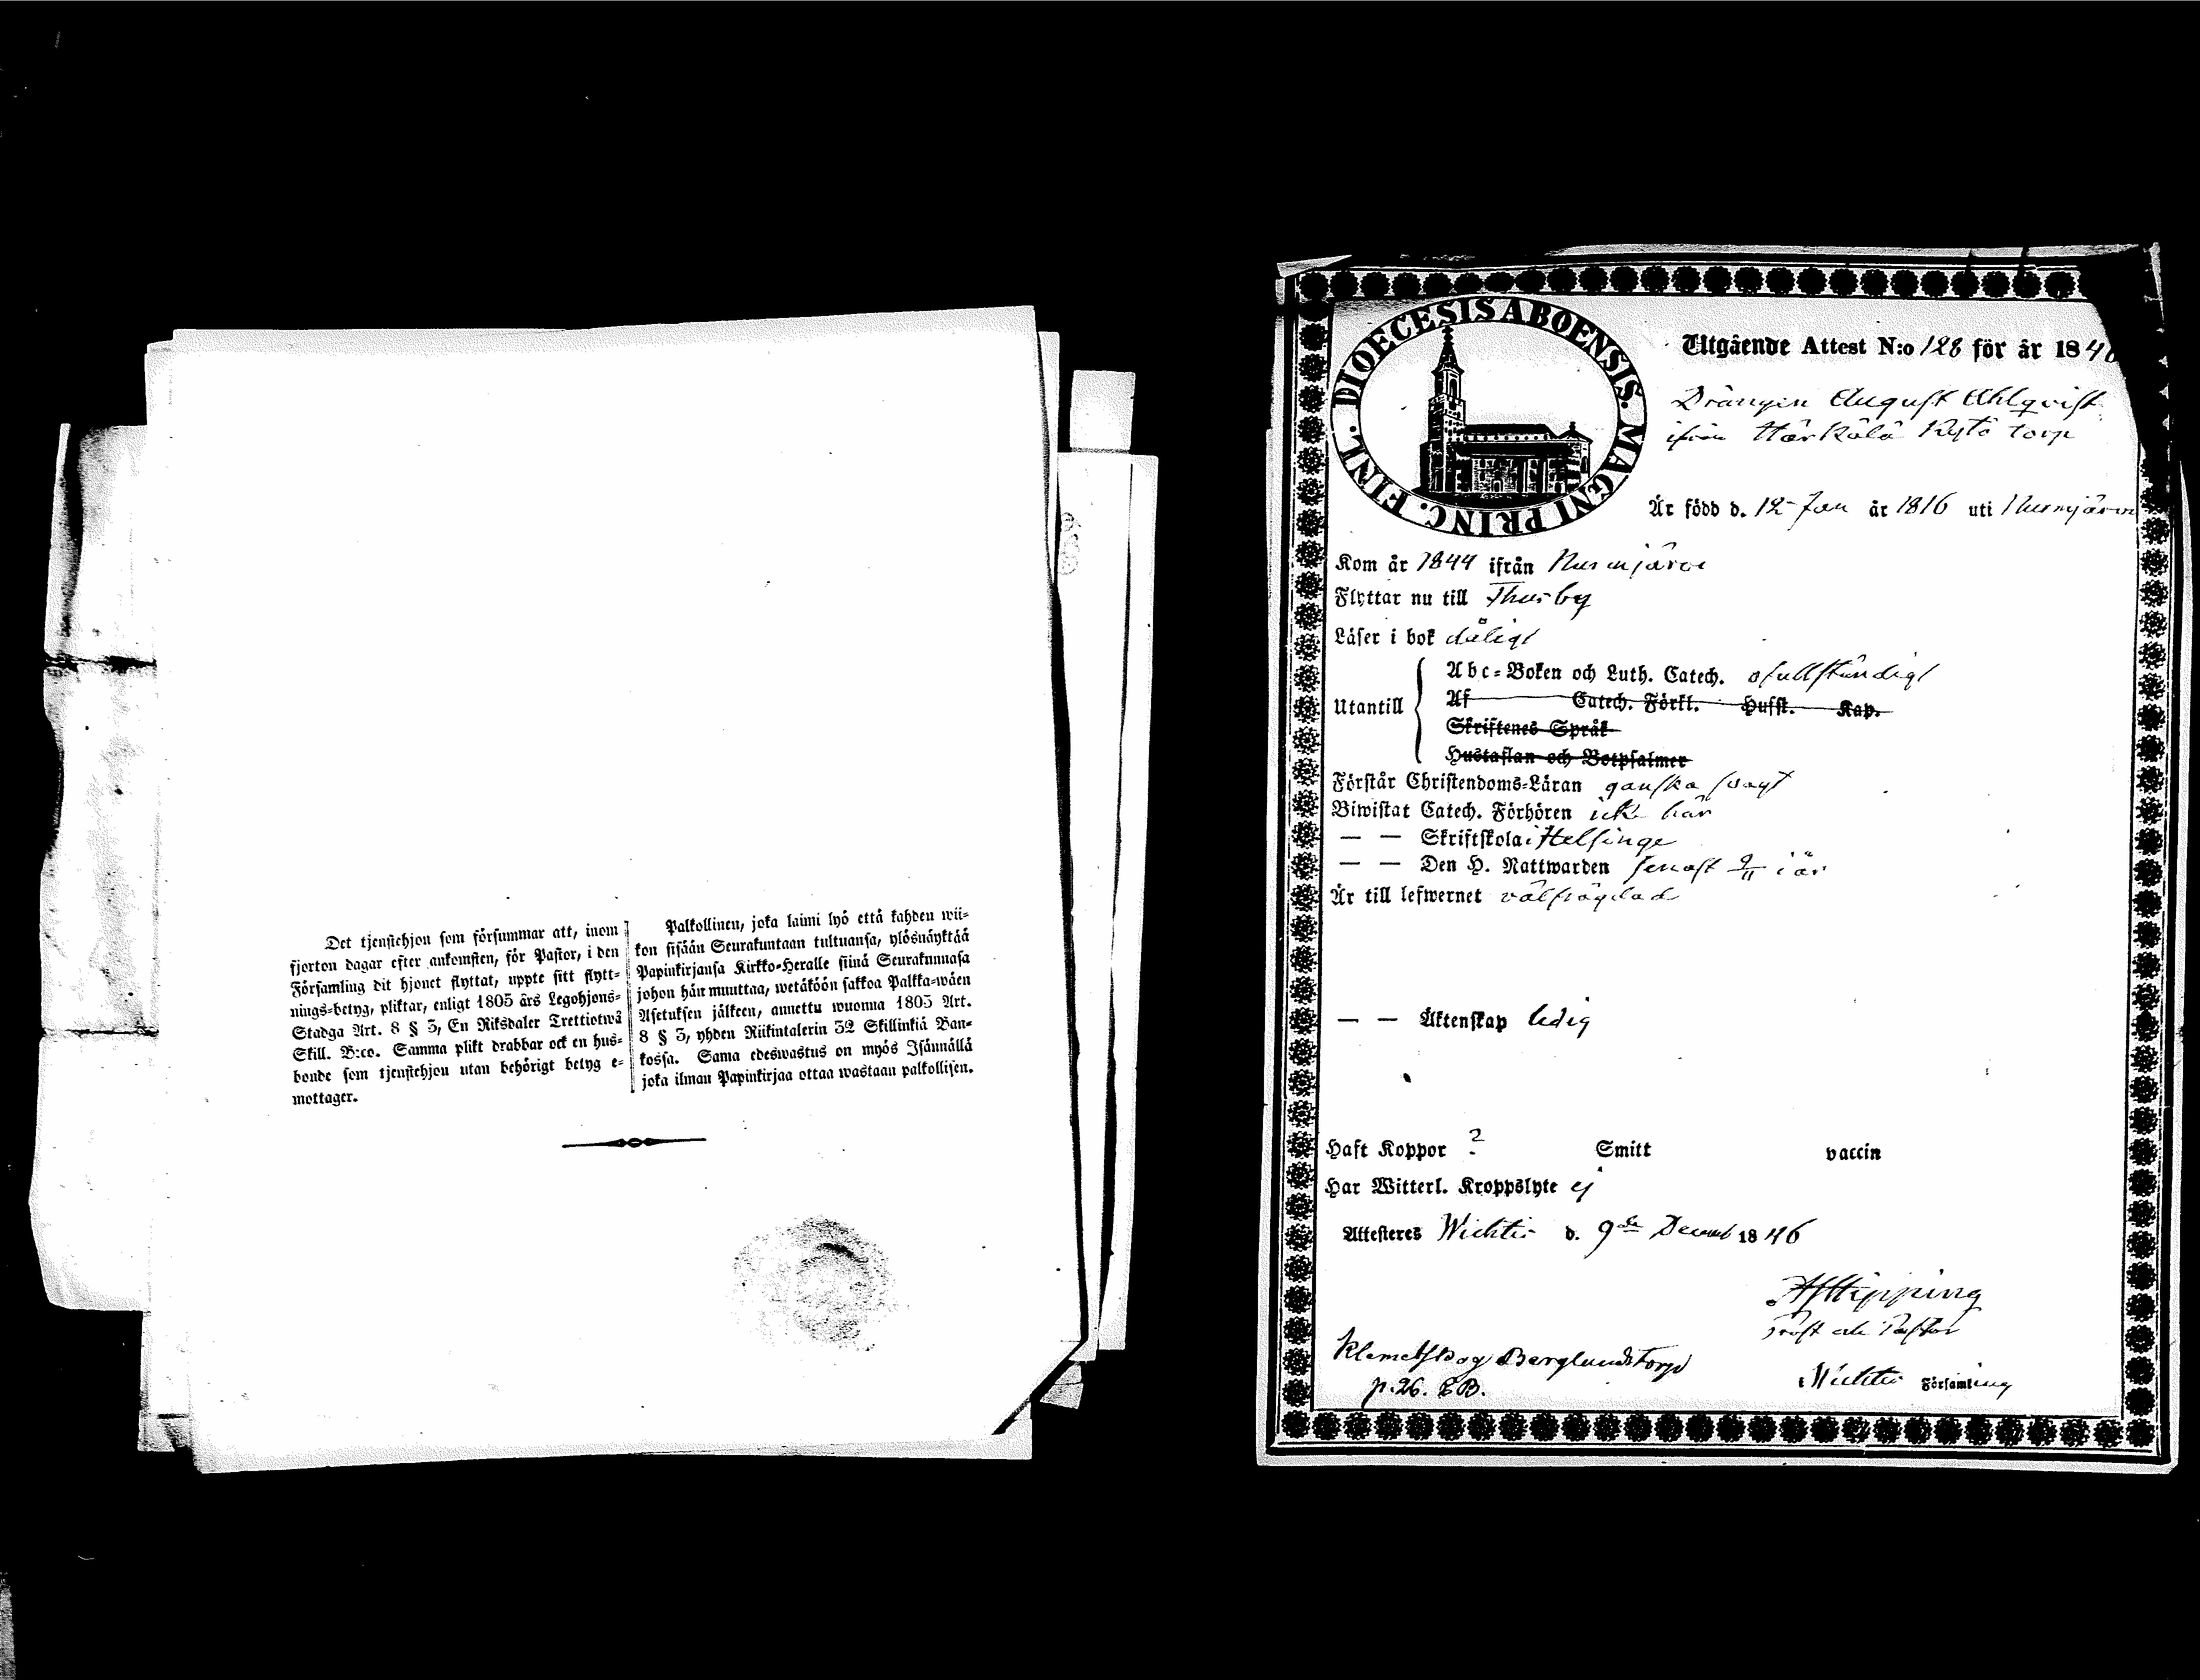 Det tjenstehjon som försummar att, inom
fjorton dagar efter ankomsten, för Pastor, i den
Församling dit hjonet flyttat, uppte sitt flytt-
nings-betyg, pliktar, enligt 1805 års Legohjons-
Stadga Art. 8 § 3, En Riksdaler Trettiotwå
Skill. B:co. Samma plikt drabbar ock en hus-
bonde som tjenstehjon utan behörigt betyg e-
mottager.
Palkollinen, joka laimi lyö että kahden wii-
kon sisään Seurakuntaan tultuansa, ylösnäyktää
Papinkirjansa Kirkko-Heralle siinä Seurakunnasa
johon hän muuttaa, wetäköön sakkoa Palkka-wäen
Asetuksen jälkeen, annettu wuonna 1805 Art.
8 § 3, yhden Riikintalerin 32 Skillinkiä Ban-
kossa. Sama edeswastus on myös Isännällä
joka ilman Papinkirjaa ottaa wastaan palkollisen.
DIOECESIS ABOENSIS. MAGNI PRINC. FINL.
Utgående Attest N:o 128 för år 1846
Drängen August Ahlqvist
ifrån Härkälä Kytö torp
Är född d. 12 Jan år 1816 uti Nurmjärvi
Kom år 1844 ifrån Nurmjärvi
Flyttar nu till Thusby
Läser i bok dåligt
Utantill
Abc-Boken och Luth. Catech. ofullständigt
Af Catech. Förkl. Husst. Kap.
Skriftenes Språk
Hustaflan och Botpsalmer
Förstår Christendoms-Läran ganska swagt
Biwistat Catech. Förhören icke här
— — Skriftskola i Helsinge
— — Den H. Nattwarden senast 9/11 i år
Är till lefwernet välfrägdad
— — Äktenskap ledig
Haft Koppor ? Smitt vaccin
Har Witterl. Kroppslyte ej
Attesteres Wichtis d. 9de Decemb 1846
AJHipping
Prost och Pastor
Wichtis Församling
Klemetskog Berglunds torp
p. 26. C B.